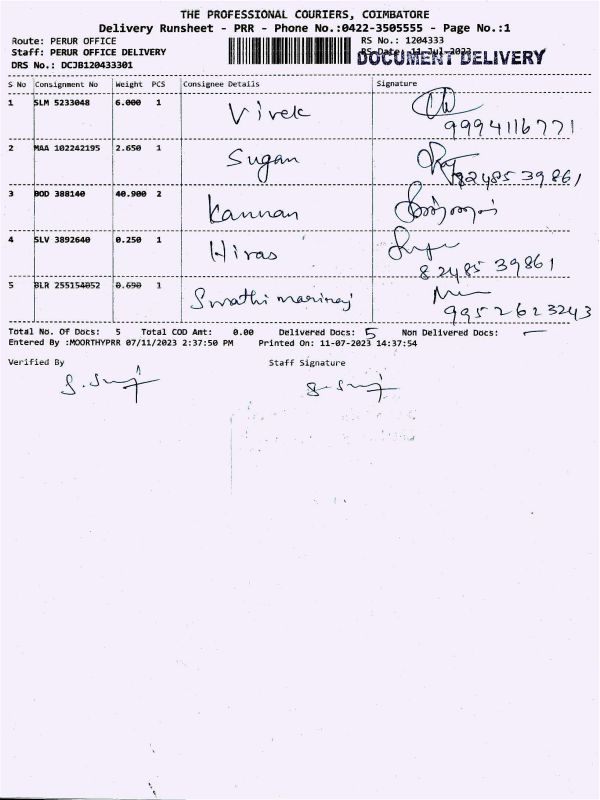 THE PROFESSIONAL COURIERS, COIMBATORE
Delivery Runsheet - PRR - Phone No.:0422-3505555 - Page No.:1
Route: PERUR OFFICE RS No.: 1204333
Staff: PERUR OFFICE DELIVERY RS Date: 11-Jul-2023
DOCUMENT DELIVERY
DRS No.: DCJB120433301
S No Consignment No Weight PCS Consignee Details Signature
1 SLM 5233048 6.000 1 Vivek
9994116771
2 MAA 102242195 2.650 1 Sugan
8248539861
3 BOD 388140 40.900 2 Kannan
4 SLV 3892640 0.250 1 Hiras
8248539861
5 BLR 255154052 0.690 1 Swathi marinaj
9952623243
Total No. Of Docs: 5 Total COD Amt: 0.00 Delivered Docs: 5 Non Delivered Docs: —
Entered By :MOORTHYPRR 07/11/2023 2:37:50 PM Printed On: 11-07-2023 14:37:54
Verified By Staff Signature